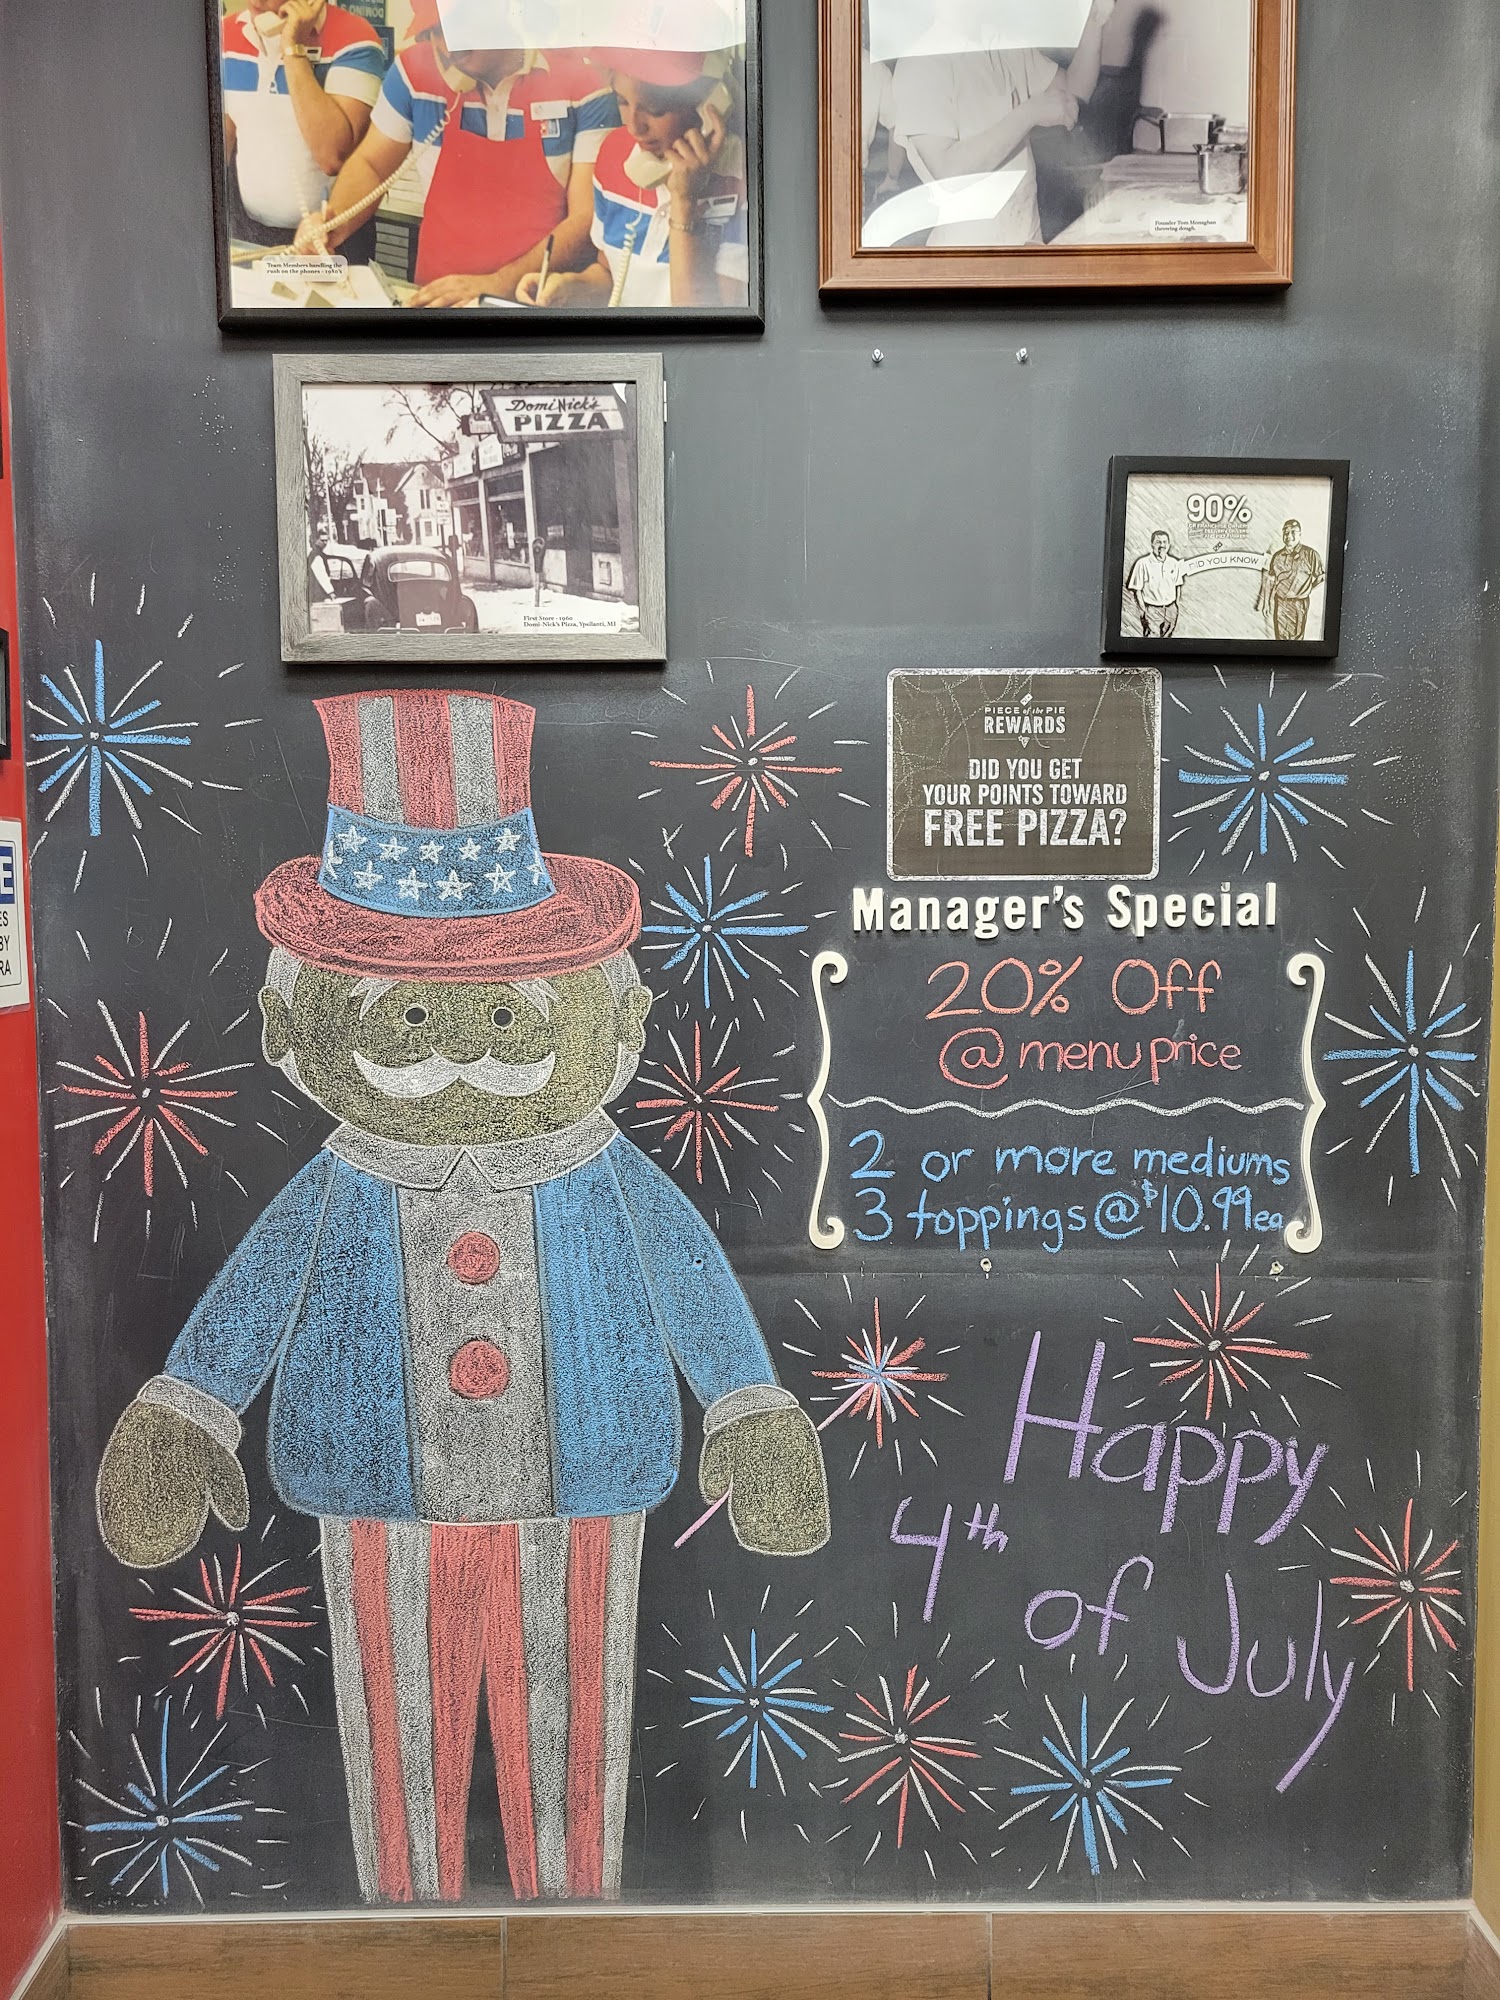 DOMINO'S
Team Members handling the
rush on the phones - 1980's
Founder Tom Monaghan
throwing dough.
DomiNick's
PIZZA
First Store - 1960
Domi-Nick's Pizza, Ypsilanti, MI
90%
DID YOU KNOW
PIECE of the PIE
REWARDS
DID YOU GET
YOUR POINTS TOWARD
FREE PIZZA?
Manager's Special
20% Off
@ menu price
2 or more mediums
3 toppings @ $10.99 ea
Happy
4th
of July
E
ES
BY
RA